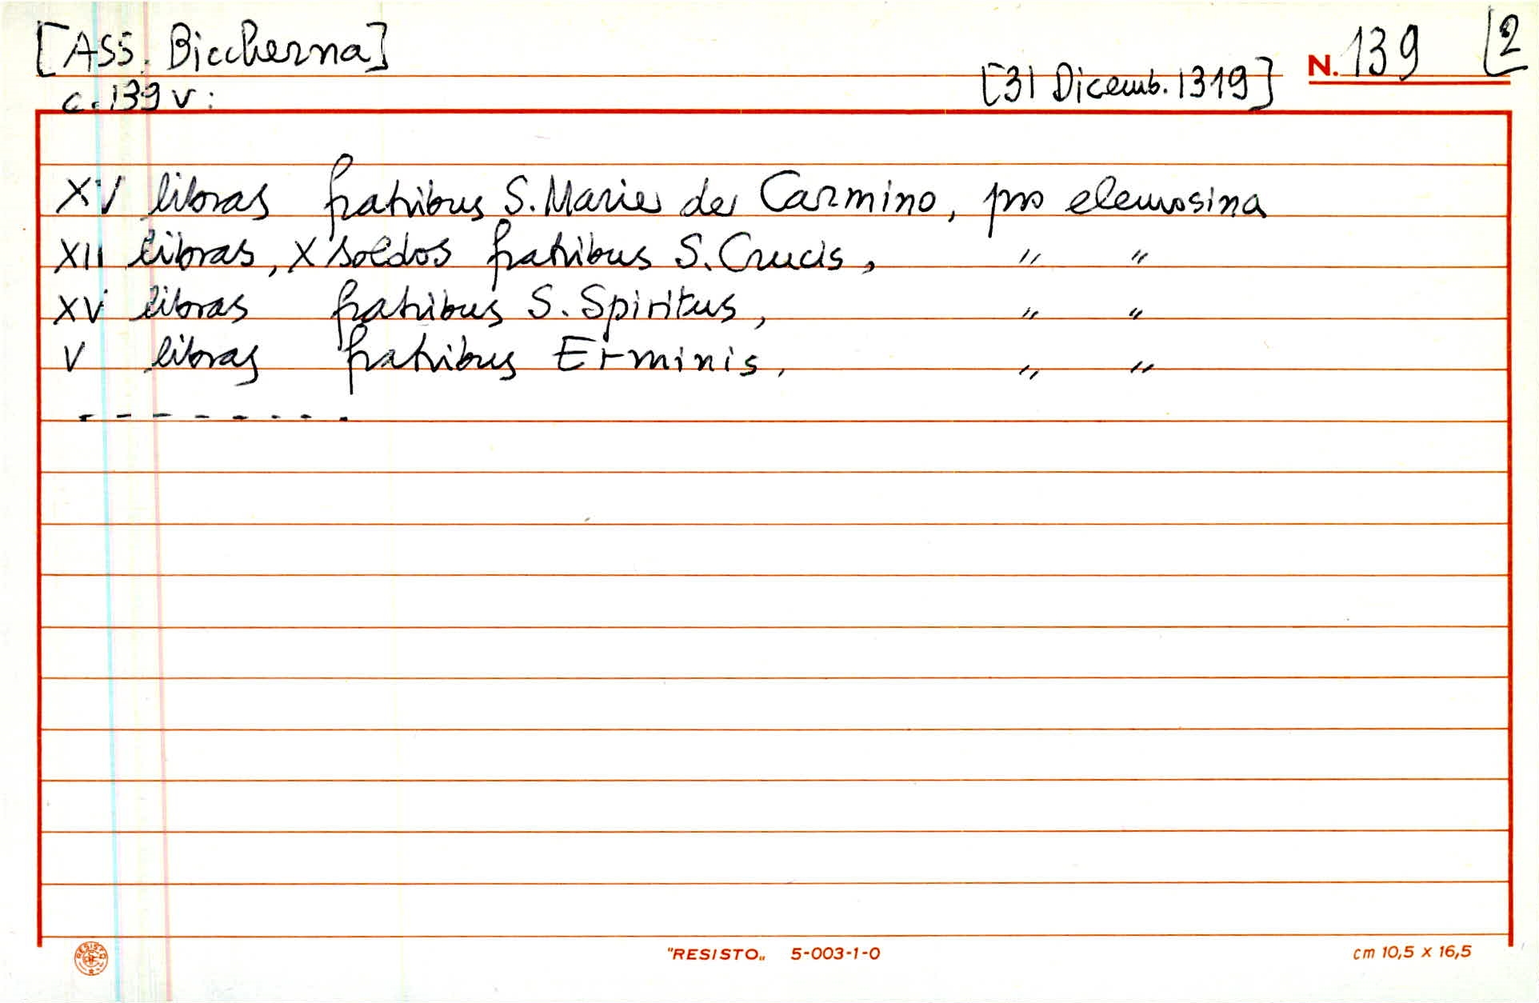 [ASS. Biccherna]
c. 139 v:
[31 Dicemb. 1319]
N. 139 [2
XV libras fratribus S. Marie de Carmino, pro elemosina
XII libras, X soldos fratribus S. Crucis, " "
XV libras fratribus S. Spiritus, " "
V libras fratribus Erminis, " "
- - - - - - - -
"RESISTO„ 5-003-1-0
cm 10,5 x 16,5